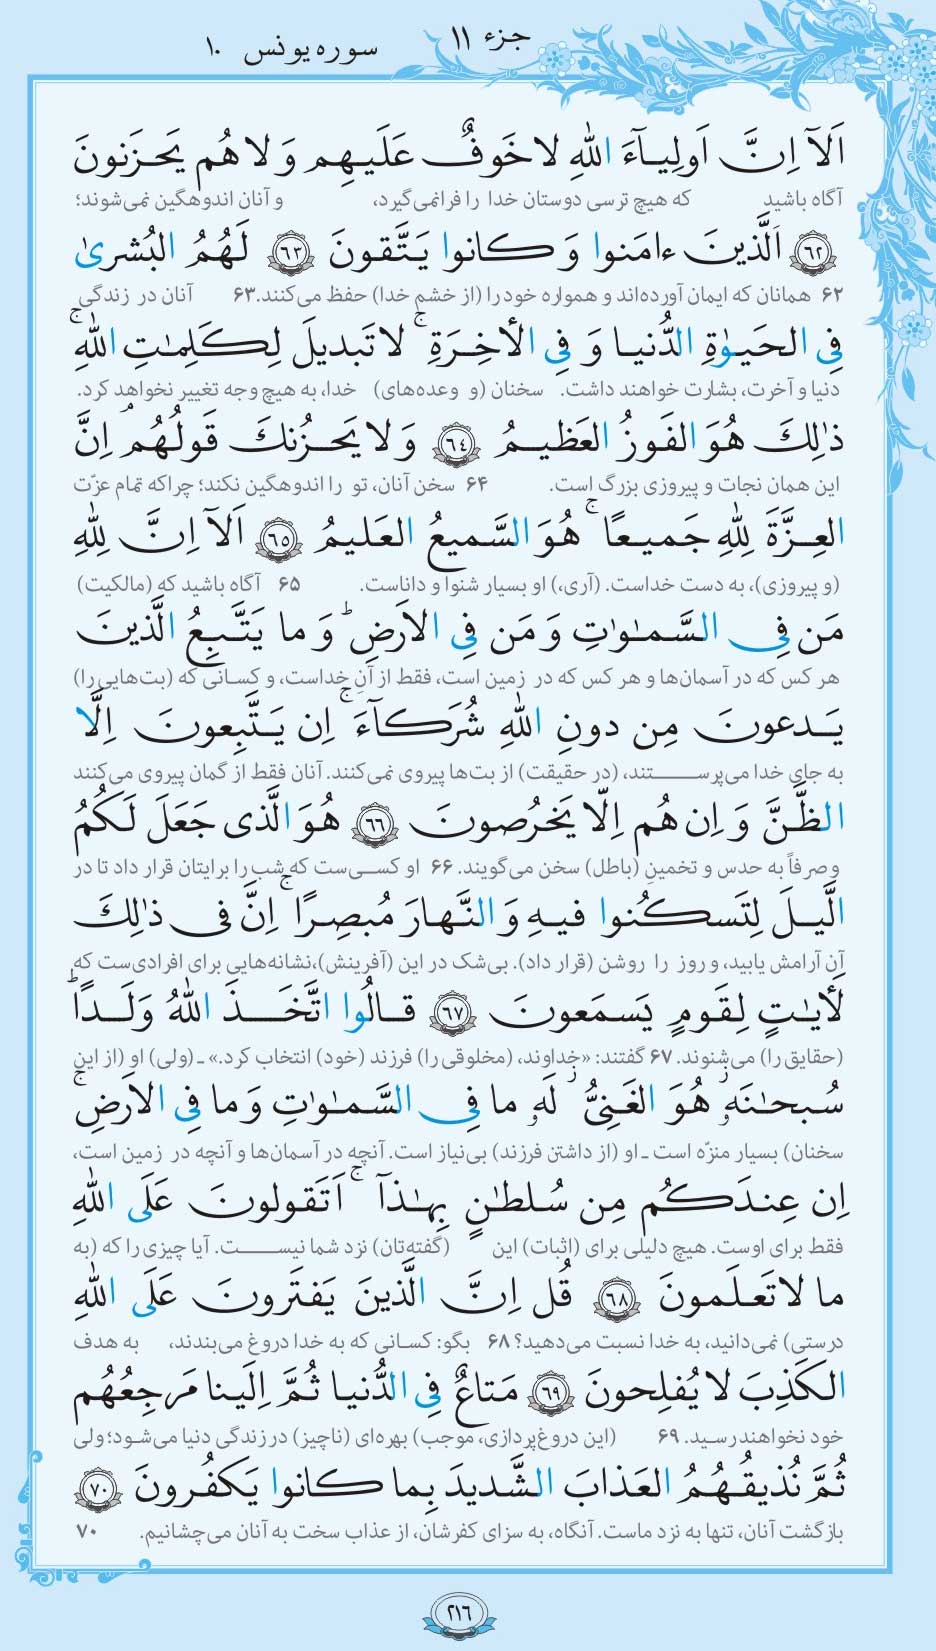 جزء ۱۱
سوره یونس ۱۰
اَلآ اِنَّ اَولِیـآءَ اللهِ لا خَوفٌ عَلَیهِم وَ لا هُم یَحزَنونَ
آگاه باشید که هیچ ترسی دوستان خدا را فرانمی‌گیرد، و آنان اندوهگین نمی‌شوند؛
﴿٦٢﴾ اَلَّذینَ ءامَنوا وَ کانوا یَتَّقونَ ﴿٦٣﴾ لَهُمُ البُشریٰ
۶۲ همانان که ایمان آورده‌اند و همواره خود را (از خشم خدا) حفظ می‌کنند. ۶۳ آنان در زندگی
فِی الحَیوٰةِ الدُّنیا وَ فِی الأخِرَةِ ۚ لا تَبدیلَ لِکَلِمٰتِ اللهِ ۚ
دنیا و آخرت، بشارت خواهند داشت. سخنان (و وعده‌های) خدا، به هیچ وجه تغییر نخواهد کرد.
ذٰلِکَ هُوَ الفَوزُ العَظیمُ ﴿٦٤﴾ وَ لا یَحزُنکَ قَولُهُم ۘ اِنَّ
این همان نجات و پیروزی بزرگ است. ۶۴ سخن آنان، تو را اندوهگین نکند؛ چراکه تمام عزّت
العِزَّةَ لِلّٰهِ جَمیعًا ۚ هُوَ السَّمیعُ العَلیمُ ﴿٦٥﴾ اَلآ اِنَّ لِلّٰهِ
(و پیروزی)، به دست خداست. (آری،) او بسیار شنوا و داناست. ۶۵ آگاه باشید که (مالکیت)
مَن فِی السَّمٰوٰتِ وَ مَن فِی الاَرضِ ۗ وَ ما یَتَّبِعُ الَّذینَ
هر کس که در آسمان‌ها و هر کس که در زمین است، فقط از آنِ خداست، و کسانی که (بت‌هایی را)
یَدعونَ مِن دونِ اللهِ شُرَکآءَ ۚ اِن یَتَّبِعونَ اِلَّا
به جای خدا می‌پرستند، (در حقیقت) از بت‌ها پیروی نمی‌کنند. آنان فقط از گمان پیروی می‌کنند
الظَّنَّ وَ اِن هُم اِلّا یَخرُصونَ ﴿٦٦﴾ هُوَ الَّذی جَعَلَ لَکُمُ
و صرفاً به حدس و تخمینِ (باطل) سخن می‌گویند. ۶۶ او کسی‌ست که شب را برایتان قرار داد تا در
الَّیلَ لِتَسکُنوا فیهِ وَ النَّهارَ مُبصِرًا ۚ اِنَّ فی ذٰلِکَ
آن آرامش یابید، و روز را روشن (قرار داد). بی‌شک در این (آفرینش)، نشانه‌هایی برای افرادی‌ست که
لَأیٰتٍ لِقَومٍ یَسمَعونَ ﴿٦٧﴾ قالُوا اتَّخَذَ اللهُ وَلَدًا ۗ
(حقایق را) می‌شنوند. ۶۷ گفتند: «خداوند، (مخلوقی را) فرزند (خود) انتخاب کرد.» ـ (ولی) او (از این
سُبحٰنَهو ۖ هُوَ الغَنِیُّ ۖ لَهو ما فِی السَّمٰوٰتِ وَ ما فِی الاَرضِ ۚ
سخنان) بسیار منزّه است ـ او (از داشتن فرزند) بی‌نیاز است. آنچه در آسمان‌ها و آنچه در زمین است،
اِن عِندَکُم مِن سُلطٰنٍ بِهٰذآ ۚ اَتَقولونَ عَلَی اللهِ
فقط برای اوست. هیچ دلیلی برای (اثبات) این (گفته‌تان) نزد شما نیست. آیا چیزی را که (به
ما لا تَعلَمونَ ﴿٦٨﴾ قُل اِنَّ الَّذینَ یَفتَرونَ عَلَی اللهِ
درستی) نمی‌دانید، به خدا نسبت می‌دهید؟ ۶۸ بگو: کسانی که به خدا دروغ می‌بندند، به هدف
الکَذِبَ لا یُفلِحونَ ﴿٦٩﴾ مَتاعٌ فِی الدُّنیا ثُمَّ اِلَینا مَرجِعُهُم
خود نخواهند رسید. ۶۹ (این دروغ‌پردازی، موجب) بهره‌ای (ناچیز) در زندگی دنیا می‌شود؛ ولی
ثُمَّ نُذیقُهُمُ العَذابَ الشَّدیدَ بِما کانوا یَکفُرونَ ﴿٧٠﴾
بازگشت آنان، تنها به نزد ماست. آنگاه، به سزای کفرشان، از عذاب سخت به آنان می‌چشانیم. ۷۰
۲۱۶